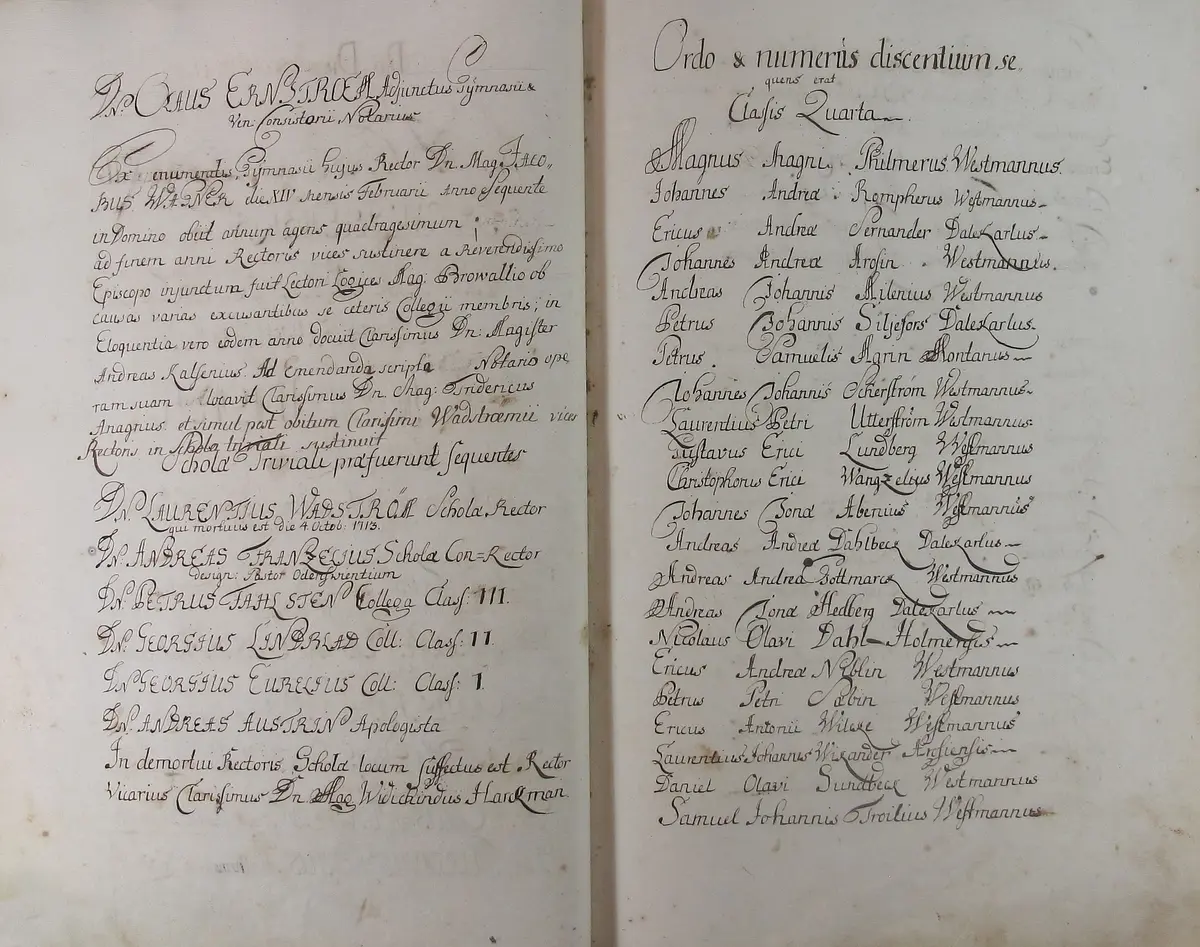 Dn. OLAUS ERNSTRÖM Adjunctus Gymnasii &
Ven: Consistorii Notarius
Ex enumeratis Gymnasii hujus Rector Dn. Mag. JACO„
BUS WAGNER die XIV mensis Februarii Anno Sequente
in Domino obiit annum agens quadragesimum
ad finem anni Rectoris vices sustinere a Reverendissimo
Episcopo injunctum fuit Lectori Logices Mag. Browallio ob
causas varias excusantibus se ceteris Collegii membris; in
Eloquentia vero eodem anno docuit Clarissimus Dn: Magister
Andreas Kalsenius. Ad Emendanda scripta Notario ope
ram suam locavit Clarissimus Dn. Mag: Fridericus
Anagrius et simul post obitum Clarissimi Wadstroemii vices
Rectoris in Schola triviali sustinuit
Scholæ Triviali præfuerunt Sequentes
Dn. LAURENTIUS WADSTRÖM Scholæ Rector
qui mortuus est die 4 Octob: 1713.
Dn. ANDREAS FRANZELIUS Scholæ Con=Rector
design: Pastor Odensviensium
Dn. PETRUS TAHLSTEN Collega Class: III.
Dn: GEORGIUS LINDBLAD Coll: Class: II.
Dn GEORGIUS EURELIUS Coll: Class: I.
Dn. ANDREAS AUSTRIN Apologista
In demortui Rectoris Scholæ locum suffectus est Rector
Vicarius Clarissimus Dn. Mag Widichindus Harckman.
Ordo & numerus discentium se
quens erat
Classis Quarta
Magnus Magni Philmerus Westmannus.
Johannes Andreæ Rompherus Westmannus
Ericus Andreæ Sernander Dalekarlus
Johannes Andreæ Arosin Westmannus.
Andreas Johannis Milenius Westmannus
Petrus Johannis Siljefors Dalekarlus
Petrus Samuelis Agrin Montanus
Johannes Johannis Ocherström Westmannus
Laurentius Petri Utterström Westmannus
Gustavus Erici Lundberg Westmannus
Christophorus Erici Wangzelius Westmannus
Johannes Jonæ Abenius Westmannus
Andreas Andreæ Dahlbeck Dalekarlus
Andreas Andreæ Bottmarck Westmannus
Andreas Jonæ Hedberg Dalekarlus
Nicolaus Olavi Dahl Holmensis
Ericus Andreæ Noblin Westmannus
Petrus Petri Sæbin Westmannus
Ericus Antonii Wilcke Westmannus
Laurentius Johannis Wikander Arosiensis
Daniel Olavi Sundbeck Westmannus
Samuel Johannis Troilius Westmannus